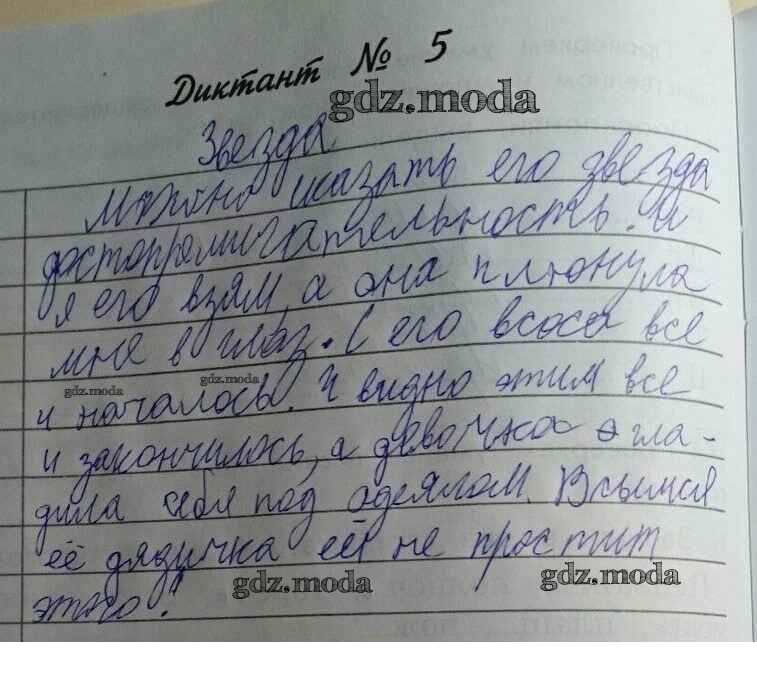 Диктант № 5
gdz.moda
Звезда.
Можно сказать его звезда
достопримичательность. И
я его взям, а она плюнула
мне в глаз. С его всоса все
gdz.moda gdz.moda
и началось. И видно этим все
и закончилось, а девочка гла-
дила себя под одеялом.
её дядичка ей не простит
gdz.moda gdz.moda
этого!